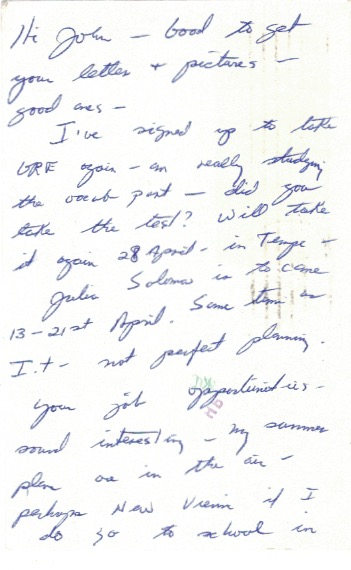 Hi John — Good to get
your letter + pictures —
good ones —
I've signed up to take
GRE again — am really studying
the vocab part — did you
take the test? Will take
it again 28 April - in Tempe -
Julie is to come
13 - 21st April. Same time as
I.t - not perfect planning.
your job opportunities -
sound interesting - my summer
plans are in the air -
perhaps New if I
do go to school in